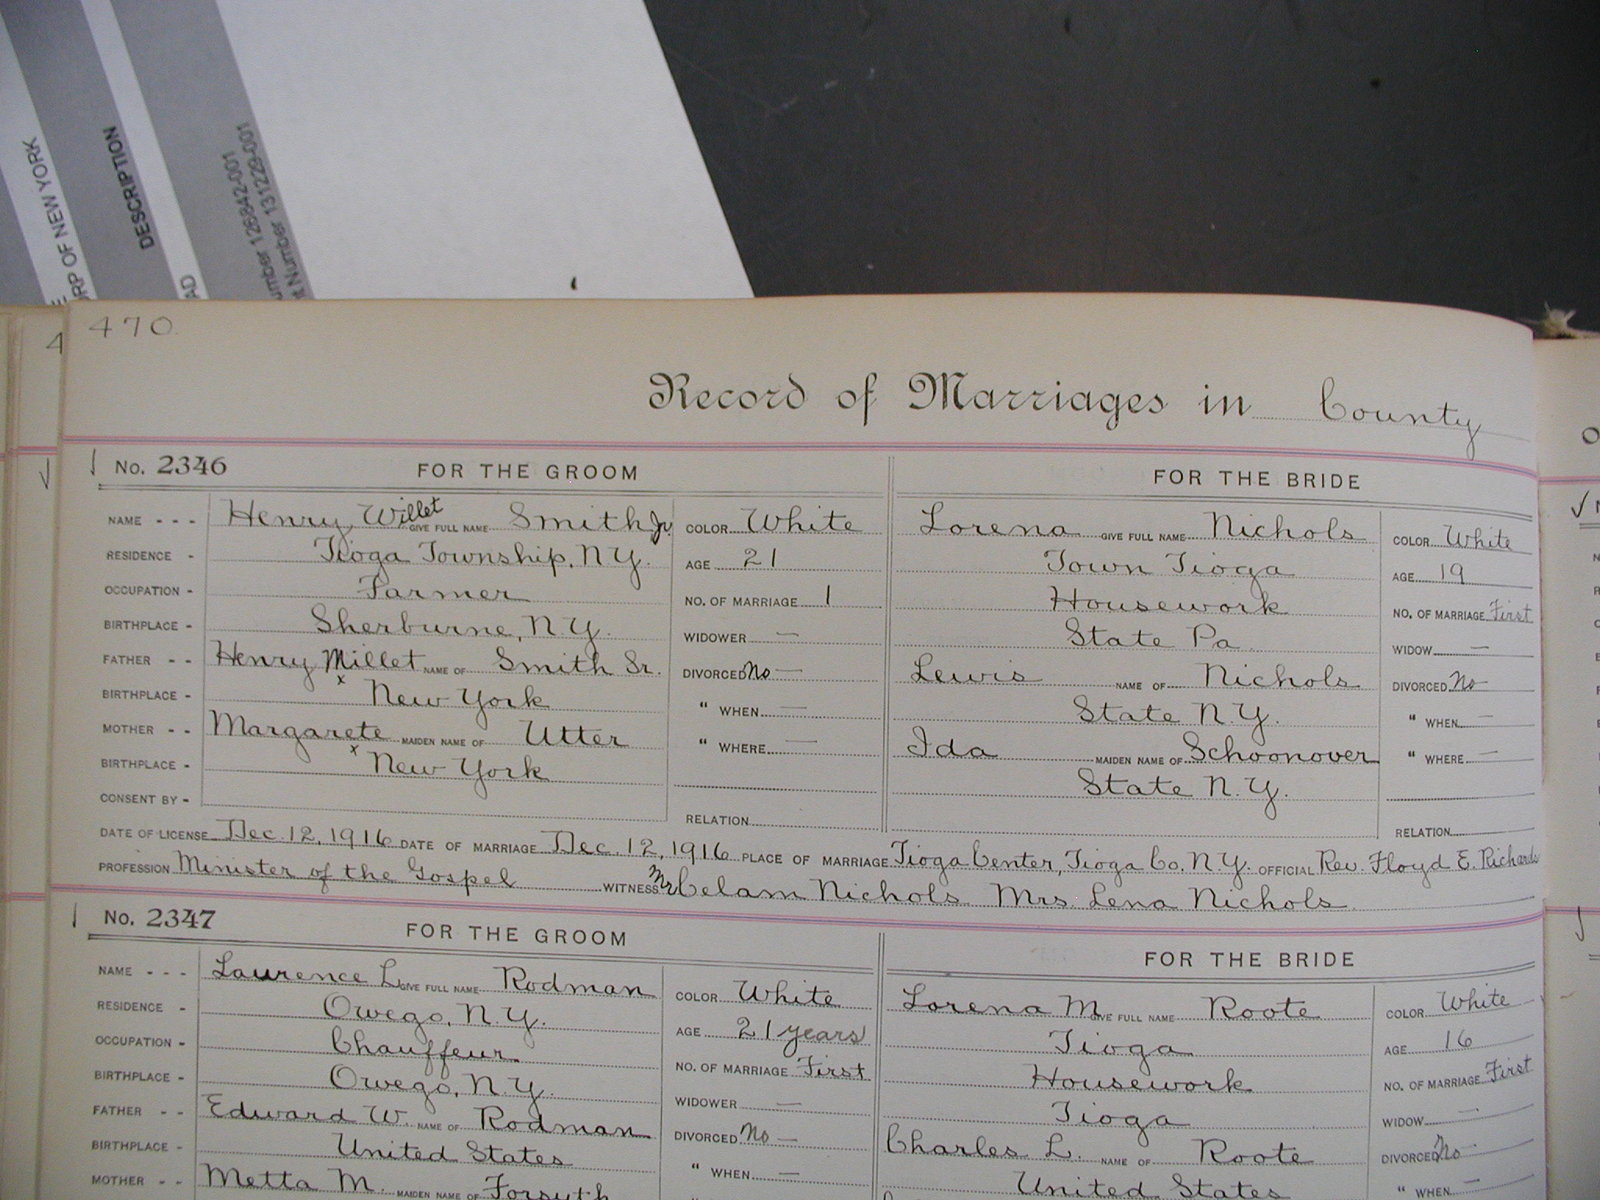 RP OF NEW YORK
DESCRIPTION
AD
umber 126842-001
t Number 131229-001
470
Record of Marriages in County
No. 2346 FOR THE GROOM FOR THE BRIDE
NAME - - - Henry Willet GIVE FULL NAME Smith Jr. COLOR White Lorena GIVE FULL NAME Nichols COLOR White
RESIDENCE - Tioga Township, N.Y. AGE 21 Town Tioga AGE 19
OCCUPATION - Farmer NO. OF MARRIAGE 1 Housework NO. OF MARRIAGE First
BIRTHPLACE - Sherburne, N.Y. WIDOWER — State Pa. WIDOW —
FATHER - - Henry Millet NAME OF Smith Sr. DIVORCED No — Lewis NAME OF Nichols DIVORCED No
BIRTHPLACE - x New York " WHEN — State N.Y. " WHEN —
MOTHER - - Margarete MAIDEN NAME OF Utter " WHERE — Ida MAIDEN NAME OF Schoonover " WHERE —
BIRTHPLACE - x New York State N.Y.
CONSENT BY - RELATION RELATION
DATE OF LICENSE Dec. 12, 1916 DATE OF MARRIAGE Dec. 12, 1916 PLACE OF MARRIAGE Tioga Center, Tioga Co, N.Y. OFFICIAL Rev. Floyd E. Richards
PROFESSION Minister of the Gospel WITNESS Mr Celam Nichols Mrs. Lena Nichols
No. 2347 FOR THE GROOM FOR THE BRIDE
NAME - - - Laurence L. GIVE FULL NAME Rodman COLOR White Lorena M. GIVE FULL NAME Roote COLOR White
RESIDENCE - Owego, N.Y. AGE 21 years Tioga AGE 16
OCCUPATION - Chauffeur NO. OF MARRIAGE First Housework NO. OF MARRIAGE First
BIRTHPLACE - Owego, N.Y. WIDOWER — Tioga WIDOW —
FATHER - - Edward W. NAME OF Rodman DIVORCED No — Charles L. NAME OF Roote DIVORCED No
BIRTHPLACE - United States " WHEN — United States " WHEN —
MOTHER - - Metta M. MAIDEN NAME OF Forsyth